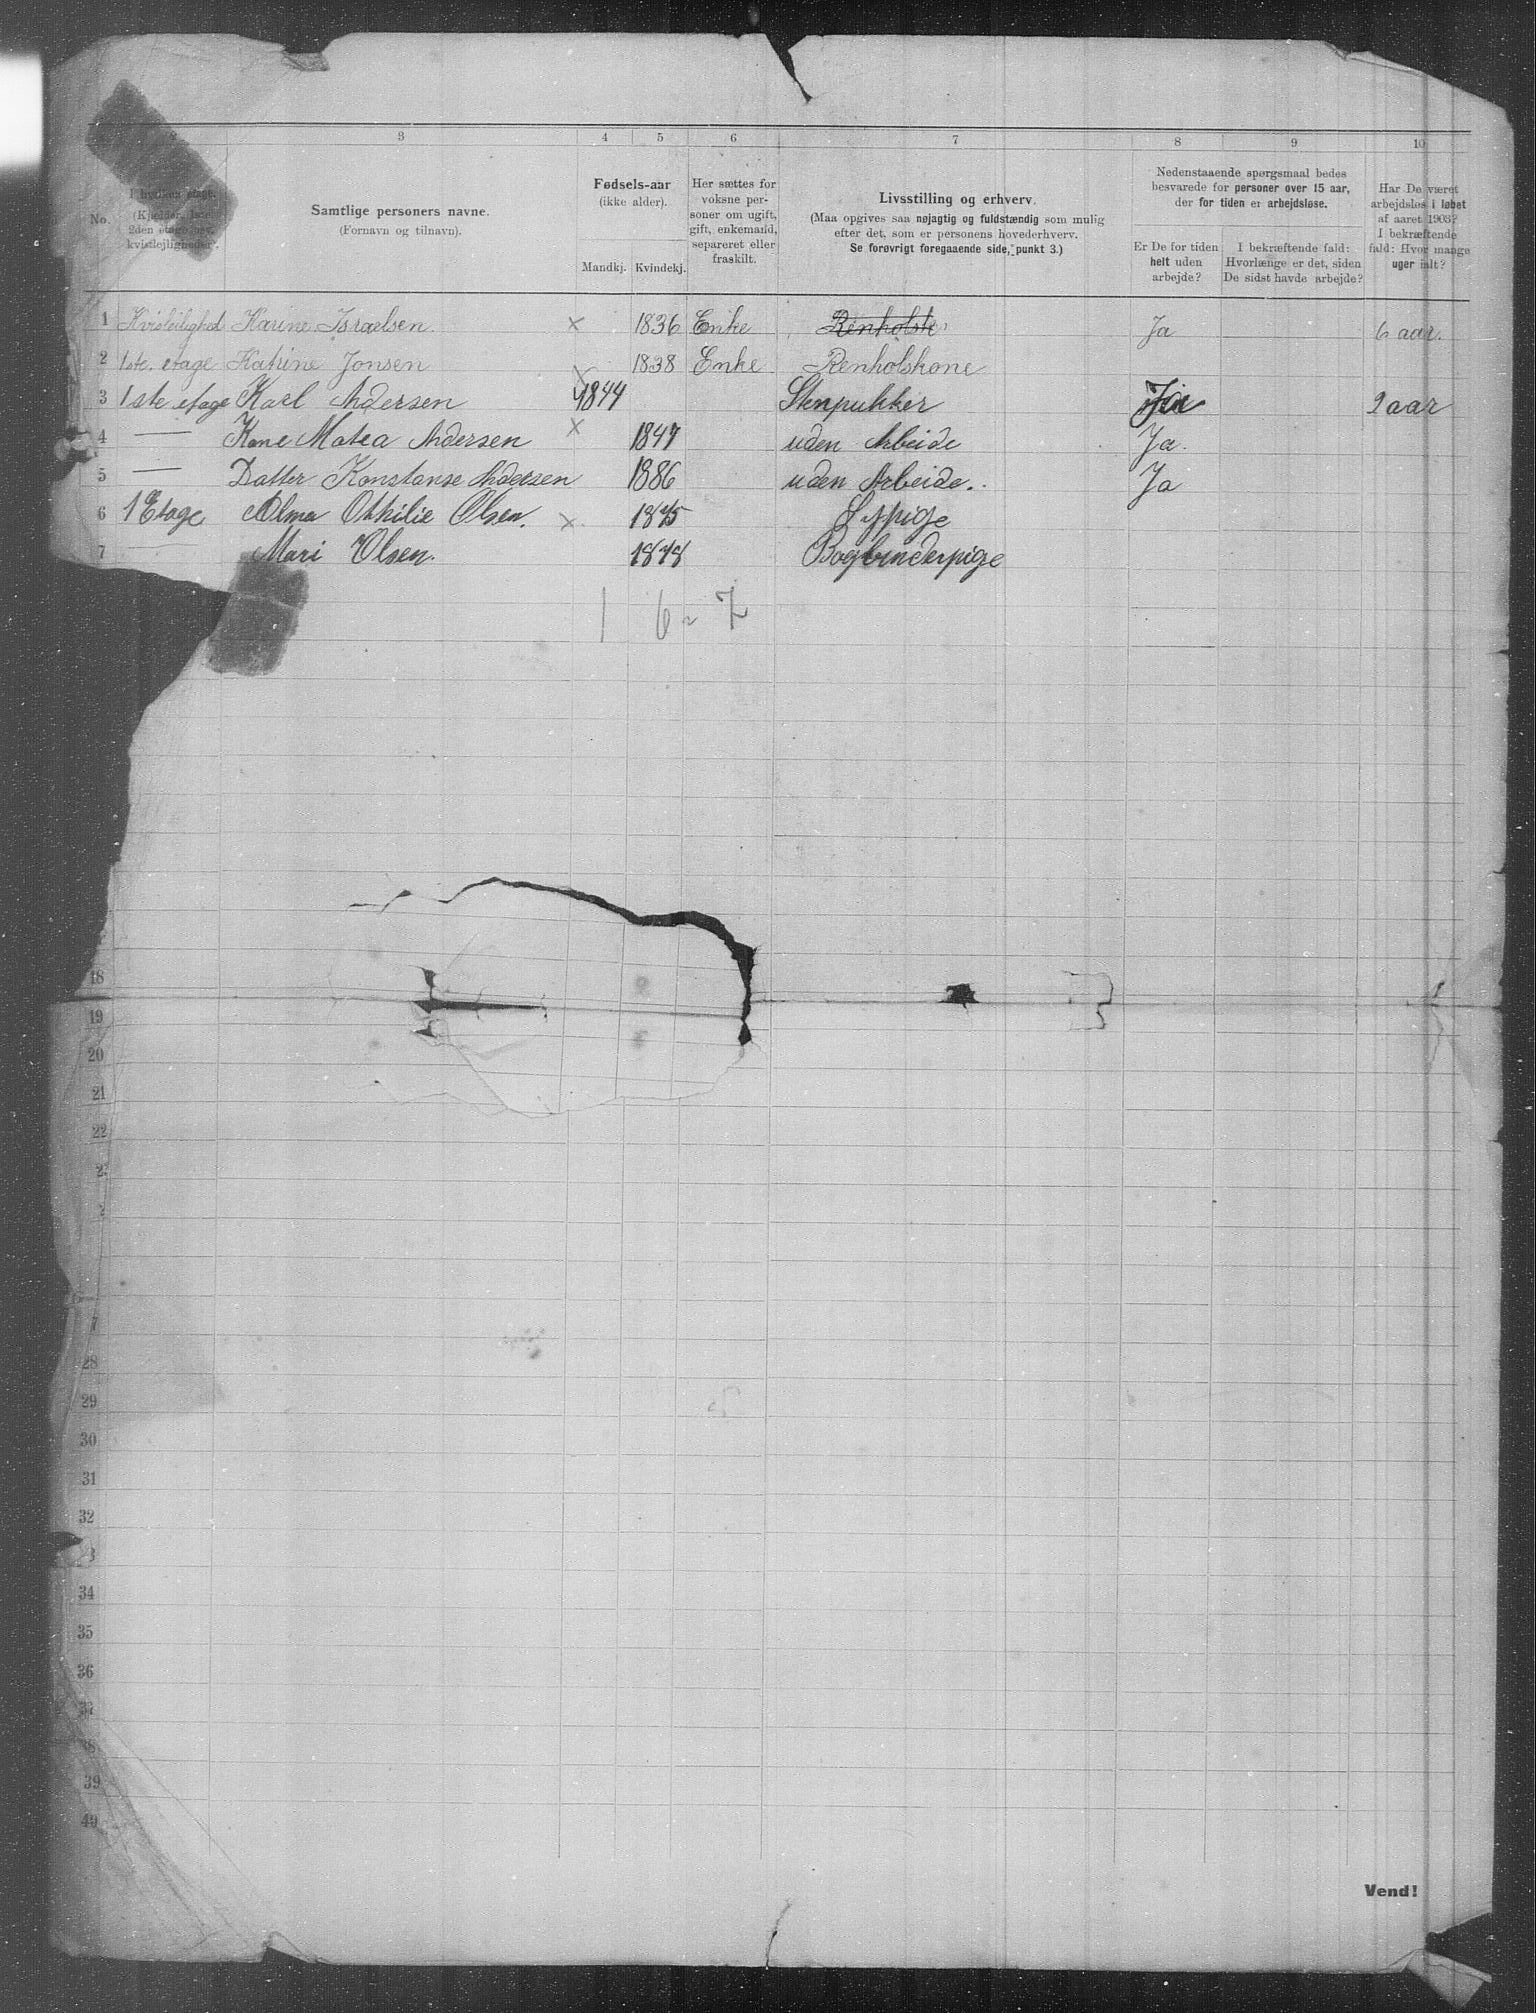 3 4 5 6 7 8 9 10
No.
I hvilken etage.
(Kjelder, 1ste
2den etage osv.
kvistleiligheder).
Samtlige personers navne.
(Fornavn og tilnavn).
Fødsels-aar
(ikke alder).
Mandkj. Kvindekj.
Her sættes for
voksne per-
soner om ugift,
gift, enkemand,
separeret eller
fraskilt.
Livsstilling og erhverv.
(Maa opgives saa nøjagtig og fuldstændig som mulig
efter det, som er personens hovederhverv.
Se forøvrigt foregaaende side, punkt 3.)
Nedenstaaende spørgsmaal bedes
besvarede for personer over 15 aar,
der for tiden er arbejdsløse.
Er De for tiden
helt uden
arbejde?
I bekræftende fald:
Hvorlænge er det, siden
De sidst havde arbejde?
Har De været
arbejdsløs i løbet
af aaret 1903?
I bekræftende
fald: Hvor mange
uger ialt?
1 Kvisleilighed Karine Israelsen × 1836 Enke Renholsk Ja 6 aar.
2 1ste. etage Katrine Jonsen × 1838 Enke Renholskone
3 1ste etage Karl Andersen 1844 Stenpukker Ja 2 aar
4 — Kone Matea Andersen × 1847 uden Arbeide Ja.
5 — Datter Konstanse Andersen 1886 uden Arbeide. Ja
6 1 Etage Alma Othilie Olsen. × 1875 Sypige
7 Mari Olsen. 1878 Bogbinderpige
1 6 = 7
18
19
20
21
22
28
29
30
31
32
34
35
36
37
38
39
40
Vend!